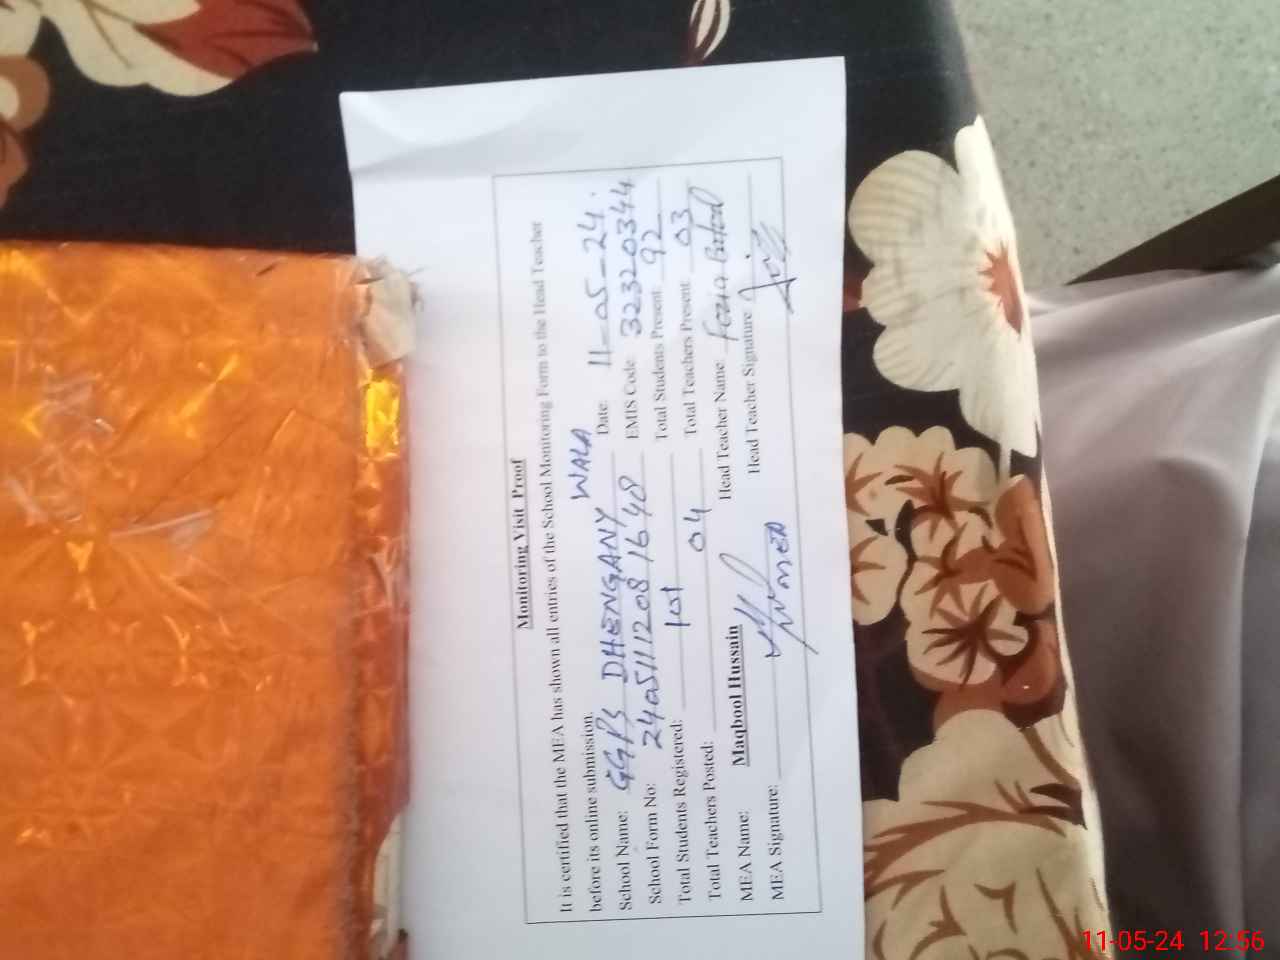 Monitoring Visit Proof
It is certified that the MEA has shown all entries of the School Monitoring Form to the Head Teacher
before its online submission.
School Name: GGPS DHENGANY WALA Date: 11-05-24.
School Form No: 2405111208 1648 EMIS Code: 32320344
Total Students Registered: 101 Total Students Present: 92
Total Teachers Posted: 04 Total Teachers Present: 03
MEA Name: Maqbool Hussain Head Teacher Name: Fozia Batool
MEA Signature: Head Teacher Signature
11-05-24 12:56